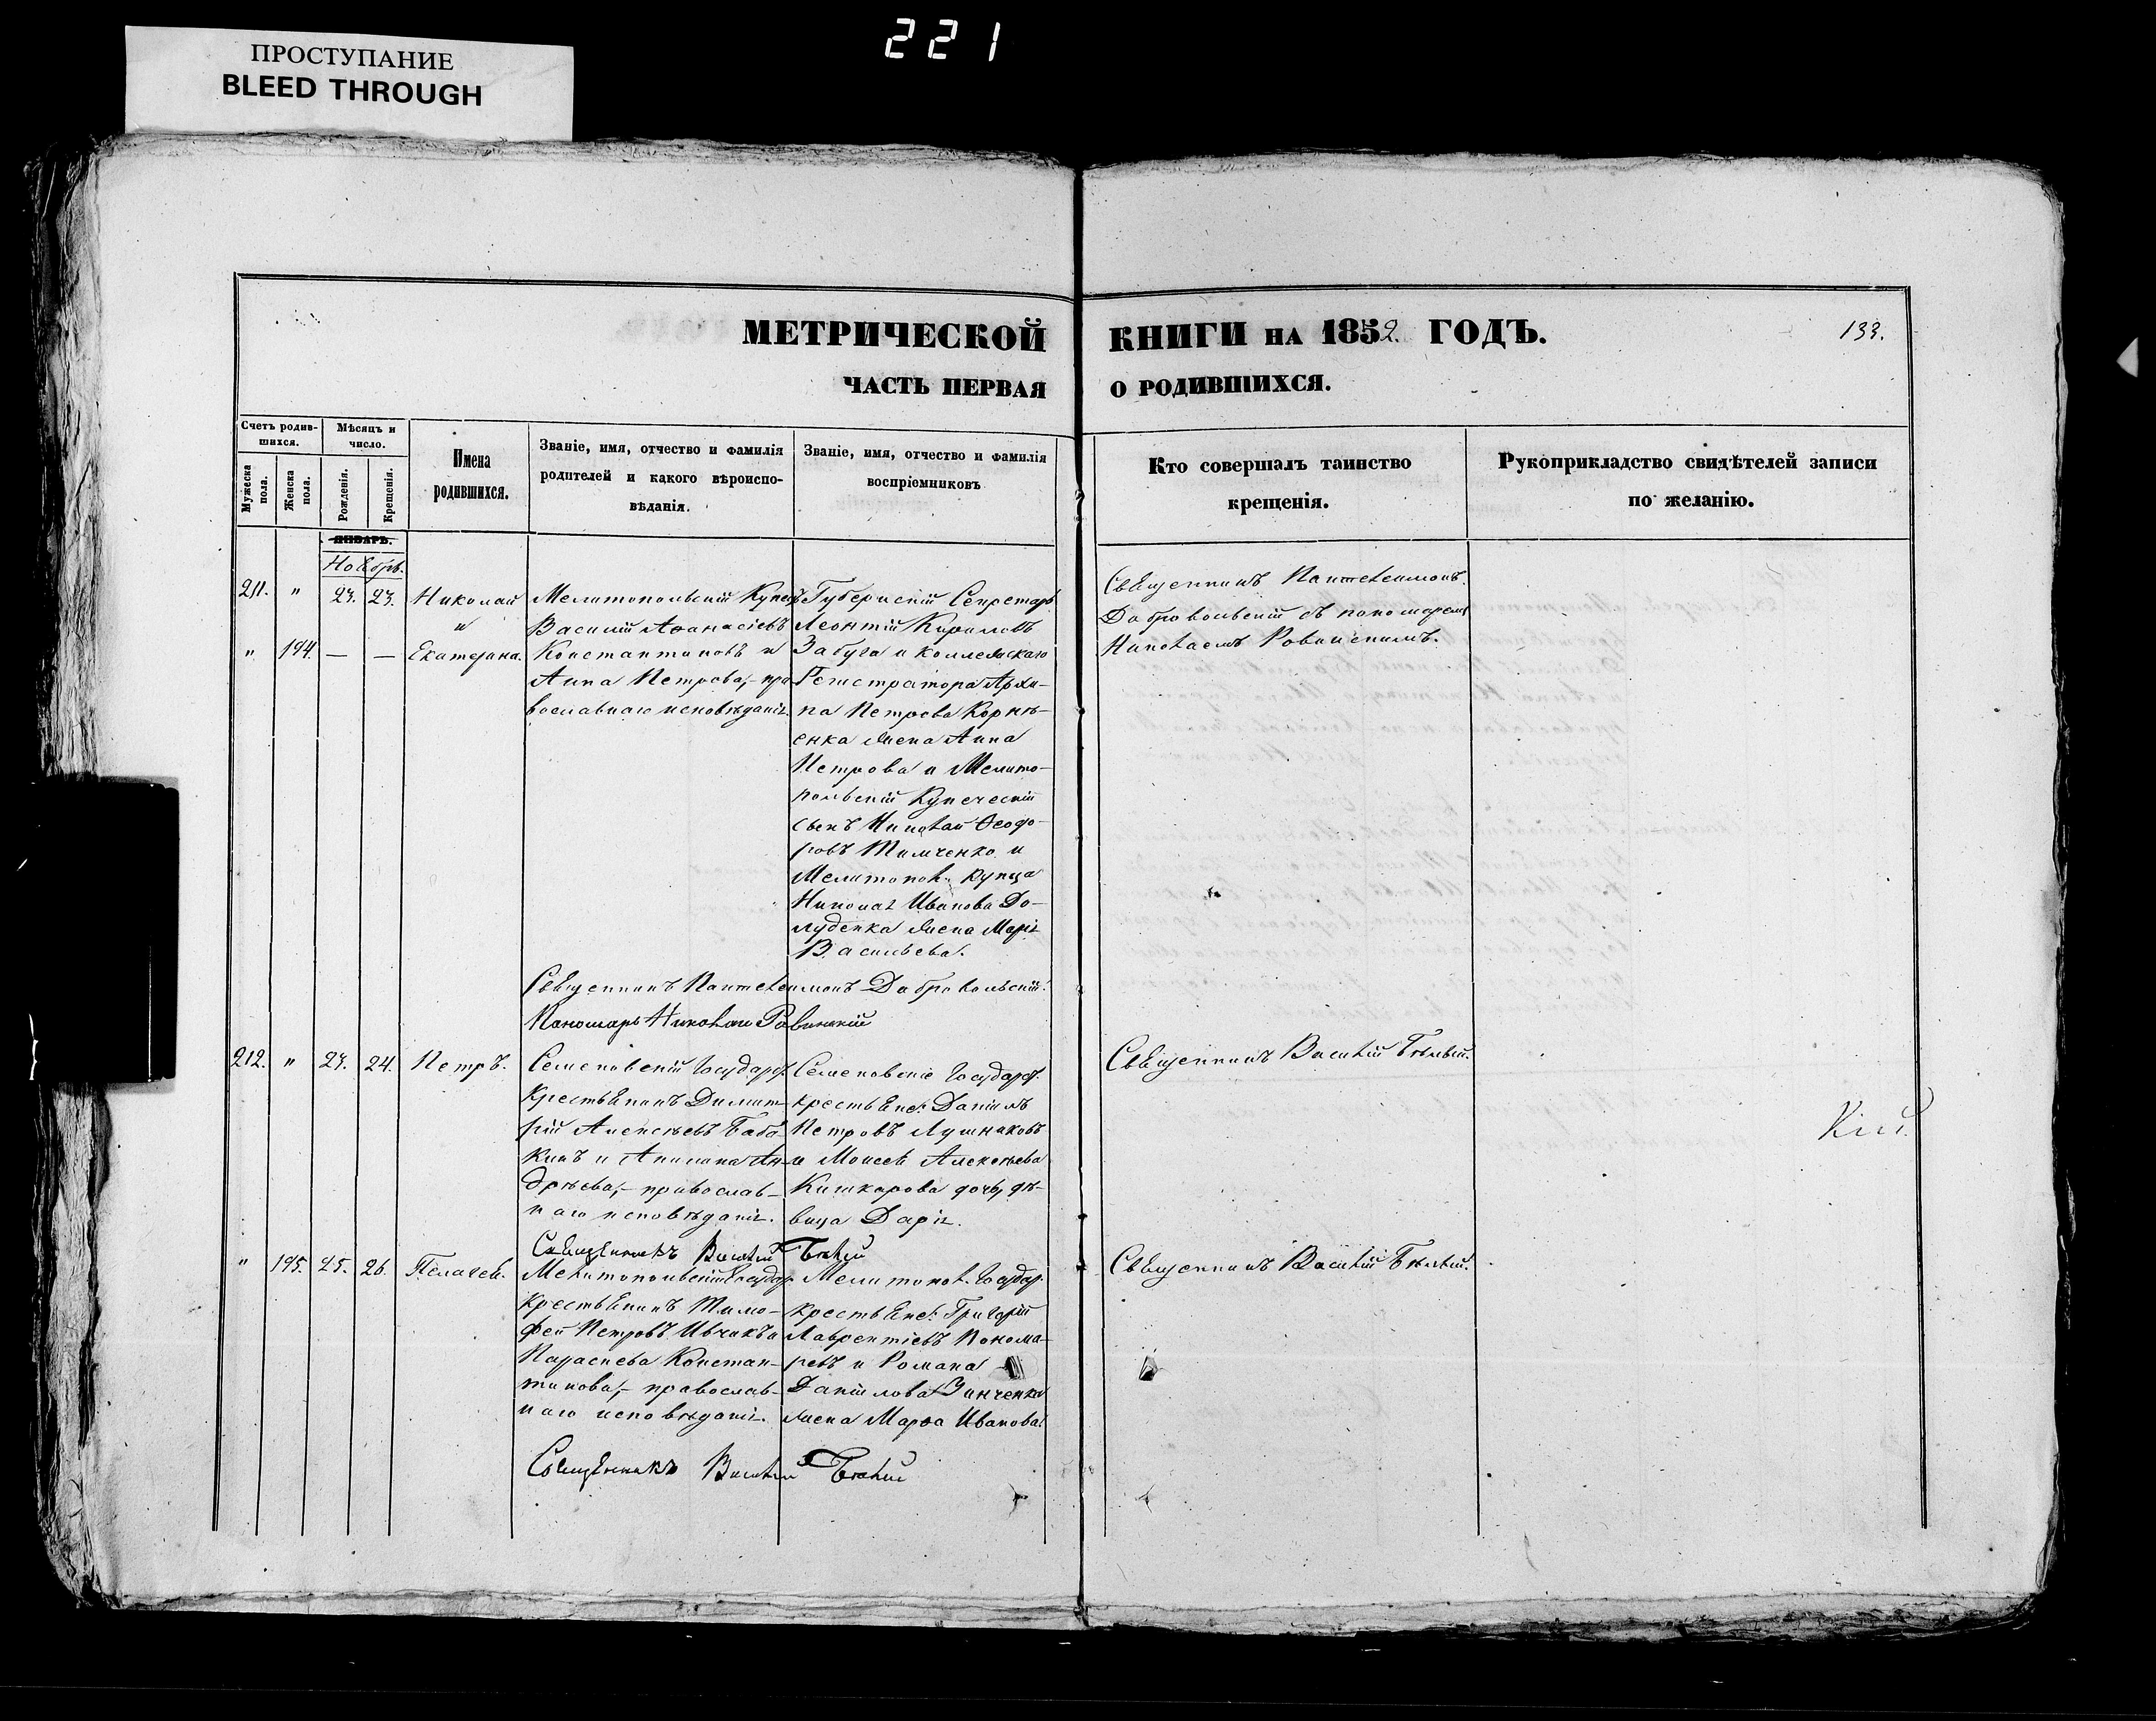 221
ПРОСТУПАНИЕ
BLEED THROUGH
МЕТРИЧЕСКОЙ КНИГИ НА 1852. ГОДЪ.
133.
ЧАСТЬ ПЕРВАЯ О РОДИВШИХСЯ.
Счетъ родив-
шихся.
Мужеска пола.
Женска пола.
Мѣсяцъ и
число.
Рожденія.
Крещенія.
Имена
родившихся.
Званіе, имя, отчество и фамилія
родителей и какого вѣроиспо-
вѣданія.
Званіе, имя, отчество и фамилія
воспріемниковъ
Кто совершалъ таинство
крещенія.
Рукоприкладство свидѣтелей записи
по желанію.
ЯНВАРЬ.
Ноябрь.
211. " 23. 23. Николай
и
" 194. — — Екатерина.
Мелитопольскій Купецъ
Василій Аѳанасіевъ
Константиновъ и
Анна Петрова,- пра-
вославнаго исповѣданія.
Губернскій Секретарь
Леонтій Кириловъ
Забуга и Коллежскаго
Регистратора Архи-
па Петрова Корнѣ-
енка жена Анна
Петрова и Мелито-
польскій Купеческій
сынъ Николай Ѳеодо-
ровъ Тимченко и
Мелитопол. купца
Николая Иванова До-
луденка жена Марія
Васильева.
Священникъ Пантелеимонъ
Добровольскій съ пономаремъ
Николаемъ Ровинскимъ.
Священникъ Пантелеимонъ Добровольскій.
Пономарь Николай Ровинскій
212. " 23. 24. Петръ.
Семеновскій Государст.
крестьянинъ Димит-
рій Алексѣевъ Бабо-
кинъ и Акилина Ан-
дрѣева,- православ-
наго исповѣданія.
Семеновскіе Государст.
крестьяне: Даніилъ
Петровъ Лушнаковъ
и Моисея Алексѣева
Кишкарова дочь, дѣ-
вица Дарія.
Священникъ Василій Бѣлый.
Кій.
Священникъ Василій Бѣлый
" 195. 25. 26. Пелагея.
Мелитопольскій Государ.
крестьянинъ Тимо-
фей Петровъ Ивчикъ и
Параскева Констан-
тинова,- православ-
наго исповѣданія.
Мелитопол. Государ.
крестьяне: Григорій
Лаврентіевъ Понома-
ревъ и Романа
Даніилова Зинченка
жена Марѳа Иванова.
Священникъ Василій Бѣлый.
Священникъ Василій Бѣлый